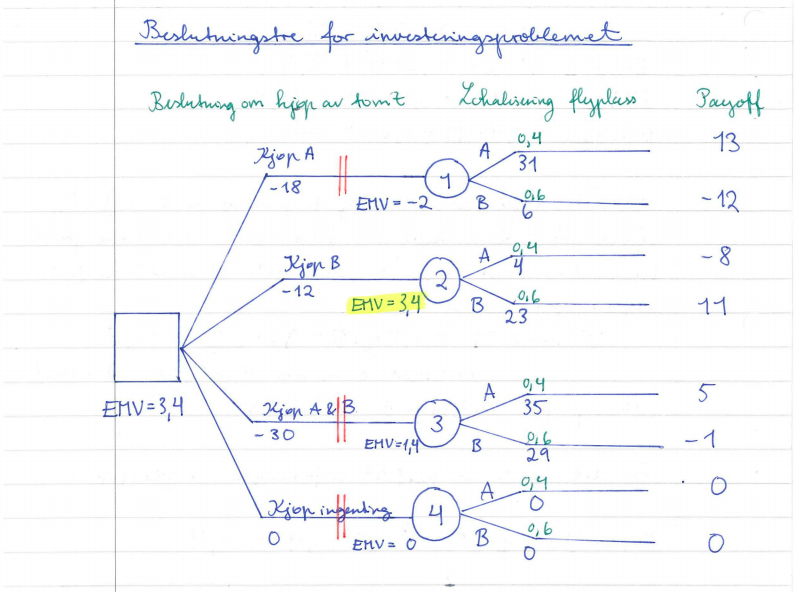 Beslutningstre for investeringsproblemet
Beslutning om kjøp av tomt Lokalisering flyplass Payoff
Kjøp A
-18
EMV = -2
1
A 0,4
31
13
B 0,6
6
-12
Kjøp B
-12
EMV = 3,4
2
A 0,4
4
-8
B 0,6
23
11
EMV = 3,4
Kjøp A & B
-30
EMV = 1,4
3
A 0,4
35
5
B 0,6
29
-1
Kjøp ingenting
0
EMV = 0
4
A 0,4
0
0
B 0,6
0
0